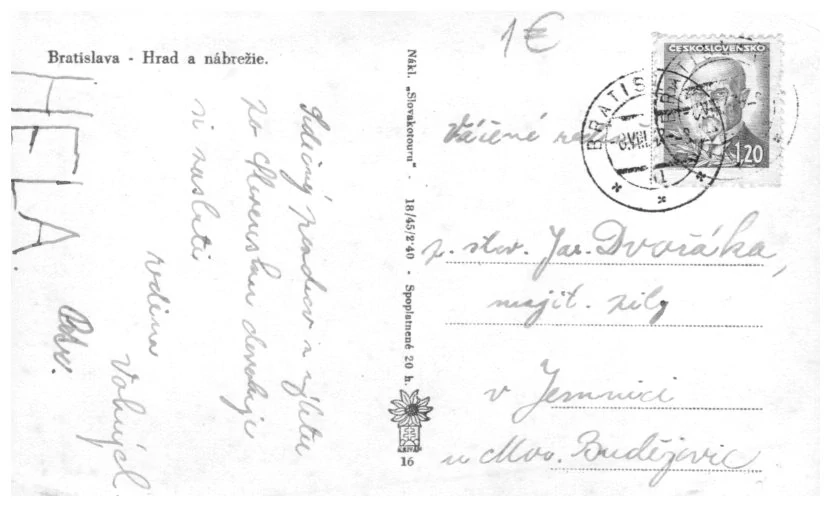 Bratislava - Hrad a nábrežie.
1€
HELA.
Srdečný pozdrav z výletu
po Slovensku dovoluje
si zaslati
rodina
Volných
Nákl. „Slovakotouru" - 18/45/2'40 - Spoplatnené 20 h.
16
ČESKOSLOVENSKO
1,20
BRATISLAVA
VIII
Vážené
p. stav. Jar. Dvořáka,
majit. pily
v Jemnici
u Mor. Budějovic